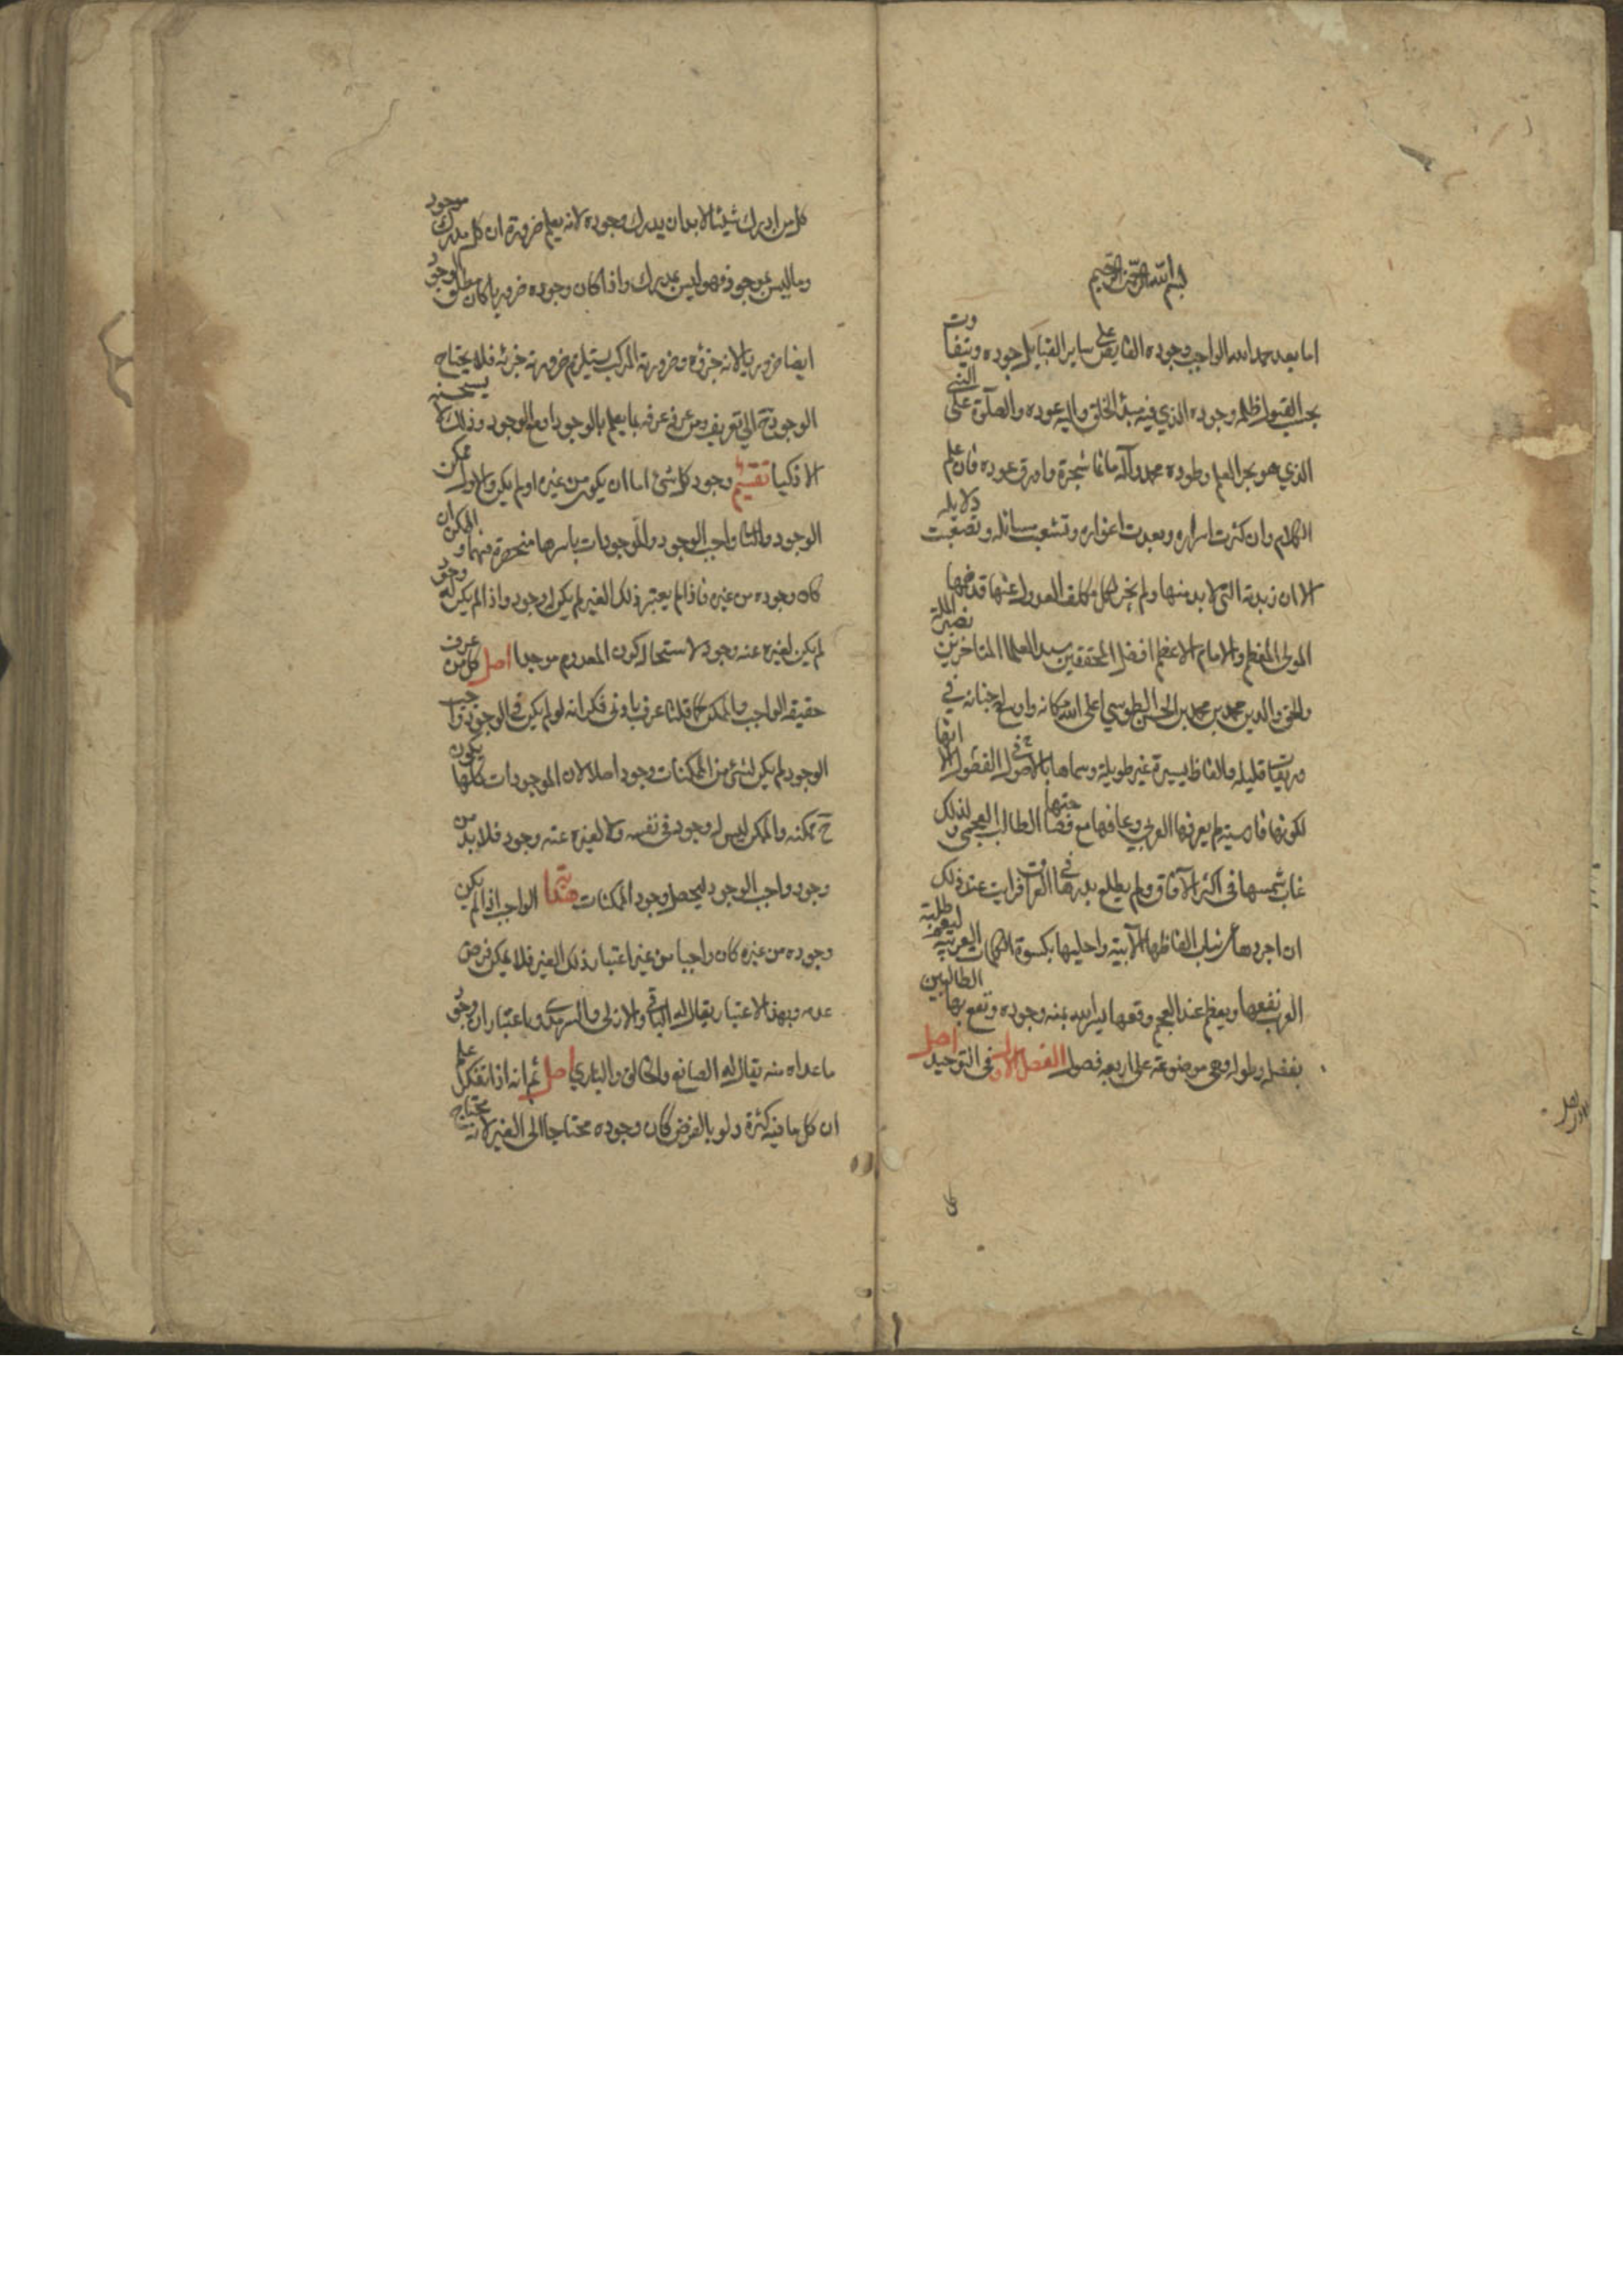 بسم الله الرحمن الرحيم
اما بعد حمد الله الواجب وجوده الفايض على ساير القبايل جوده ويتفاوت
بحسب القبول ظله وجوده الذي فيه مبدأ الخلق واليه عوده والصلوة على النبي
الذي هو بحر العلم وطوده محمد وآله ما نما شجرة واورق عوده فان علم
الكلام وان كثرت اسراره وبعدت اغواره وتشعب مسائله وتصعبت دلايله
الا ان زبدته التي لا بد منها ولم يجز لكل مكلف العدول عنها قد ضمها
المولى المعظم والامام الاعظم افضل المحققين سيد العلما المتاخرين نصير الملة
والحق والدين محمد بن محمد بن الحسن الطوسي اعلى الله مكانه واوسع جنانه في
وريقات قليله والفاظ يسيرة غير طويلة وسماها بالاصول في الفصول الا انها
لكونها فارسيته لم يعرفها العربي وعافها مع فصاحتها الطالب العجمي ولذلك
غاب شمسها في اكثر الآفاق ولم يطلع بدرها في العراق فرايت عند ذلك
ان اجردها من ثياب الفاظها الآبية واحليها بكسوة الكلمات العربيه ليعم طلبة
العرب نفعها ويعظم عند العجم وقعها ليسر الله بمنه وجوده ونفع بها الطالبين
بفضله وطوله وهي موضوعة على اربعه فصول الفصل الاول في التوحيد اصل
كل من ادرك شيئا لا بد ان يدرك وجوده لانه يعلم ضرورة ان كل مدرك موجود
وما ليس بموجود فهو ليس بمدرك واذا كان وجوده ضروريا كان مطلق الوجود
ايضا ضروريا لانه جزؤه وضرورية المركب يستلزم ضرورية جزئه فلا يحتاج
الوجود ح الى تعريف ومن عرفه عرفه بما يعلم بالوجود او مع الوجود وذلك لا يستحسنه
الاذكيا تقسيم وجود كل شئ اما ان يكون من غيره او لم يكن والاول ممكن
الوجود والثا واجب الوجود والموجودات باسرها منحصرة فيهما والممكن ان
كان وجوده من غيره فاذا لم يعتبر ذلك الغير لم يكن له وجود واذا لم يكن له وجود
لم يكن لغيره عنه وجود لاستحاله كون المعدوم موجدا اصل كل من عرف
حقيقه الواجب والممكن كما قلنا عرف بادنى فكر انه لو لم يكن في الوجود واجب
الوجود لم يكن لشئ من الممكنات وجود اصلا لان الموجودات كلها يكون
ح ممكنه والممكن ليس له وجود في نفسه ولا لغيره عنه وجود فلا بد من
وجود واجب الوجود ليحصل وجود الممكنات الواجب اذا لم يكن
وجوده من غيره كان واجبا من غير اعتبار ذلك الغير فلا يمكن فرض
عدمه وبهذا الاعتبار يقال له الباقي والازلي والسرمدي وباعتبار ان وجود
ما عداه منه يقال له الصانع والخالق والباري اصل ثم انه اذا تفكر علم
ان كل ما فيه كثرة ولو بالفرض كان وجوده محتاجا الى الغير لانه يحتاج